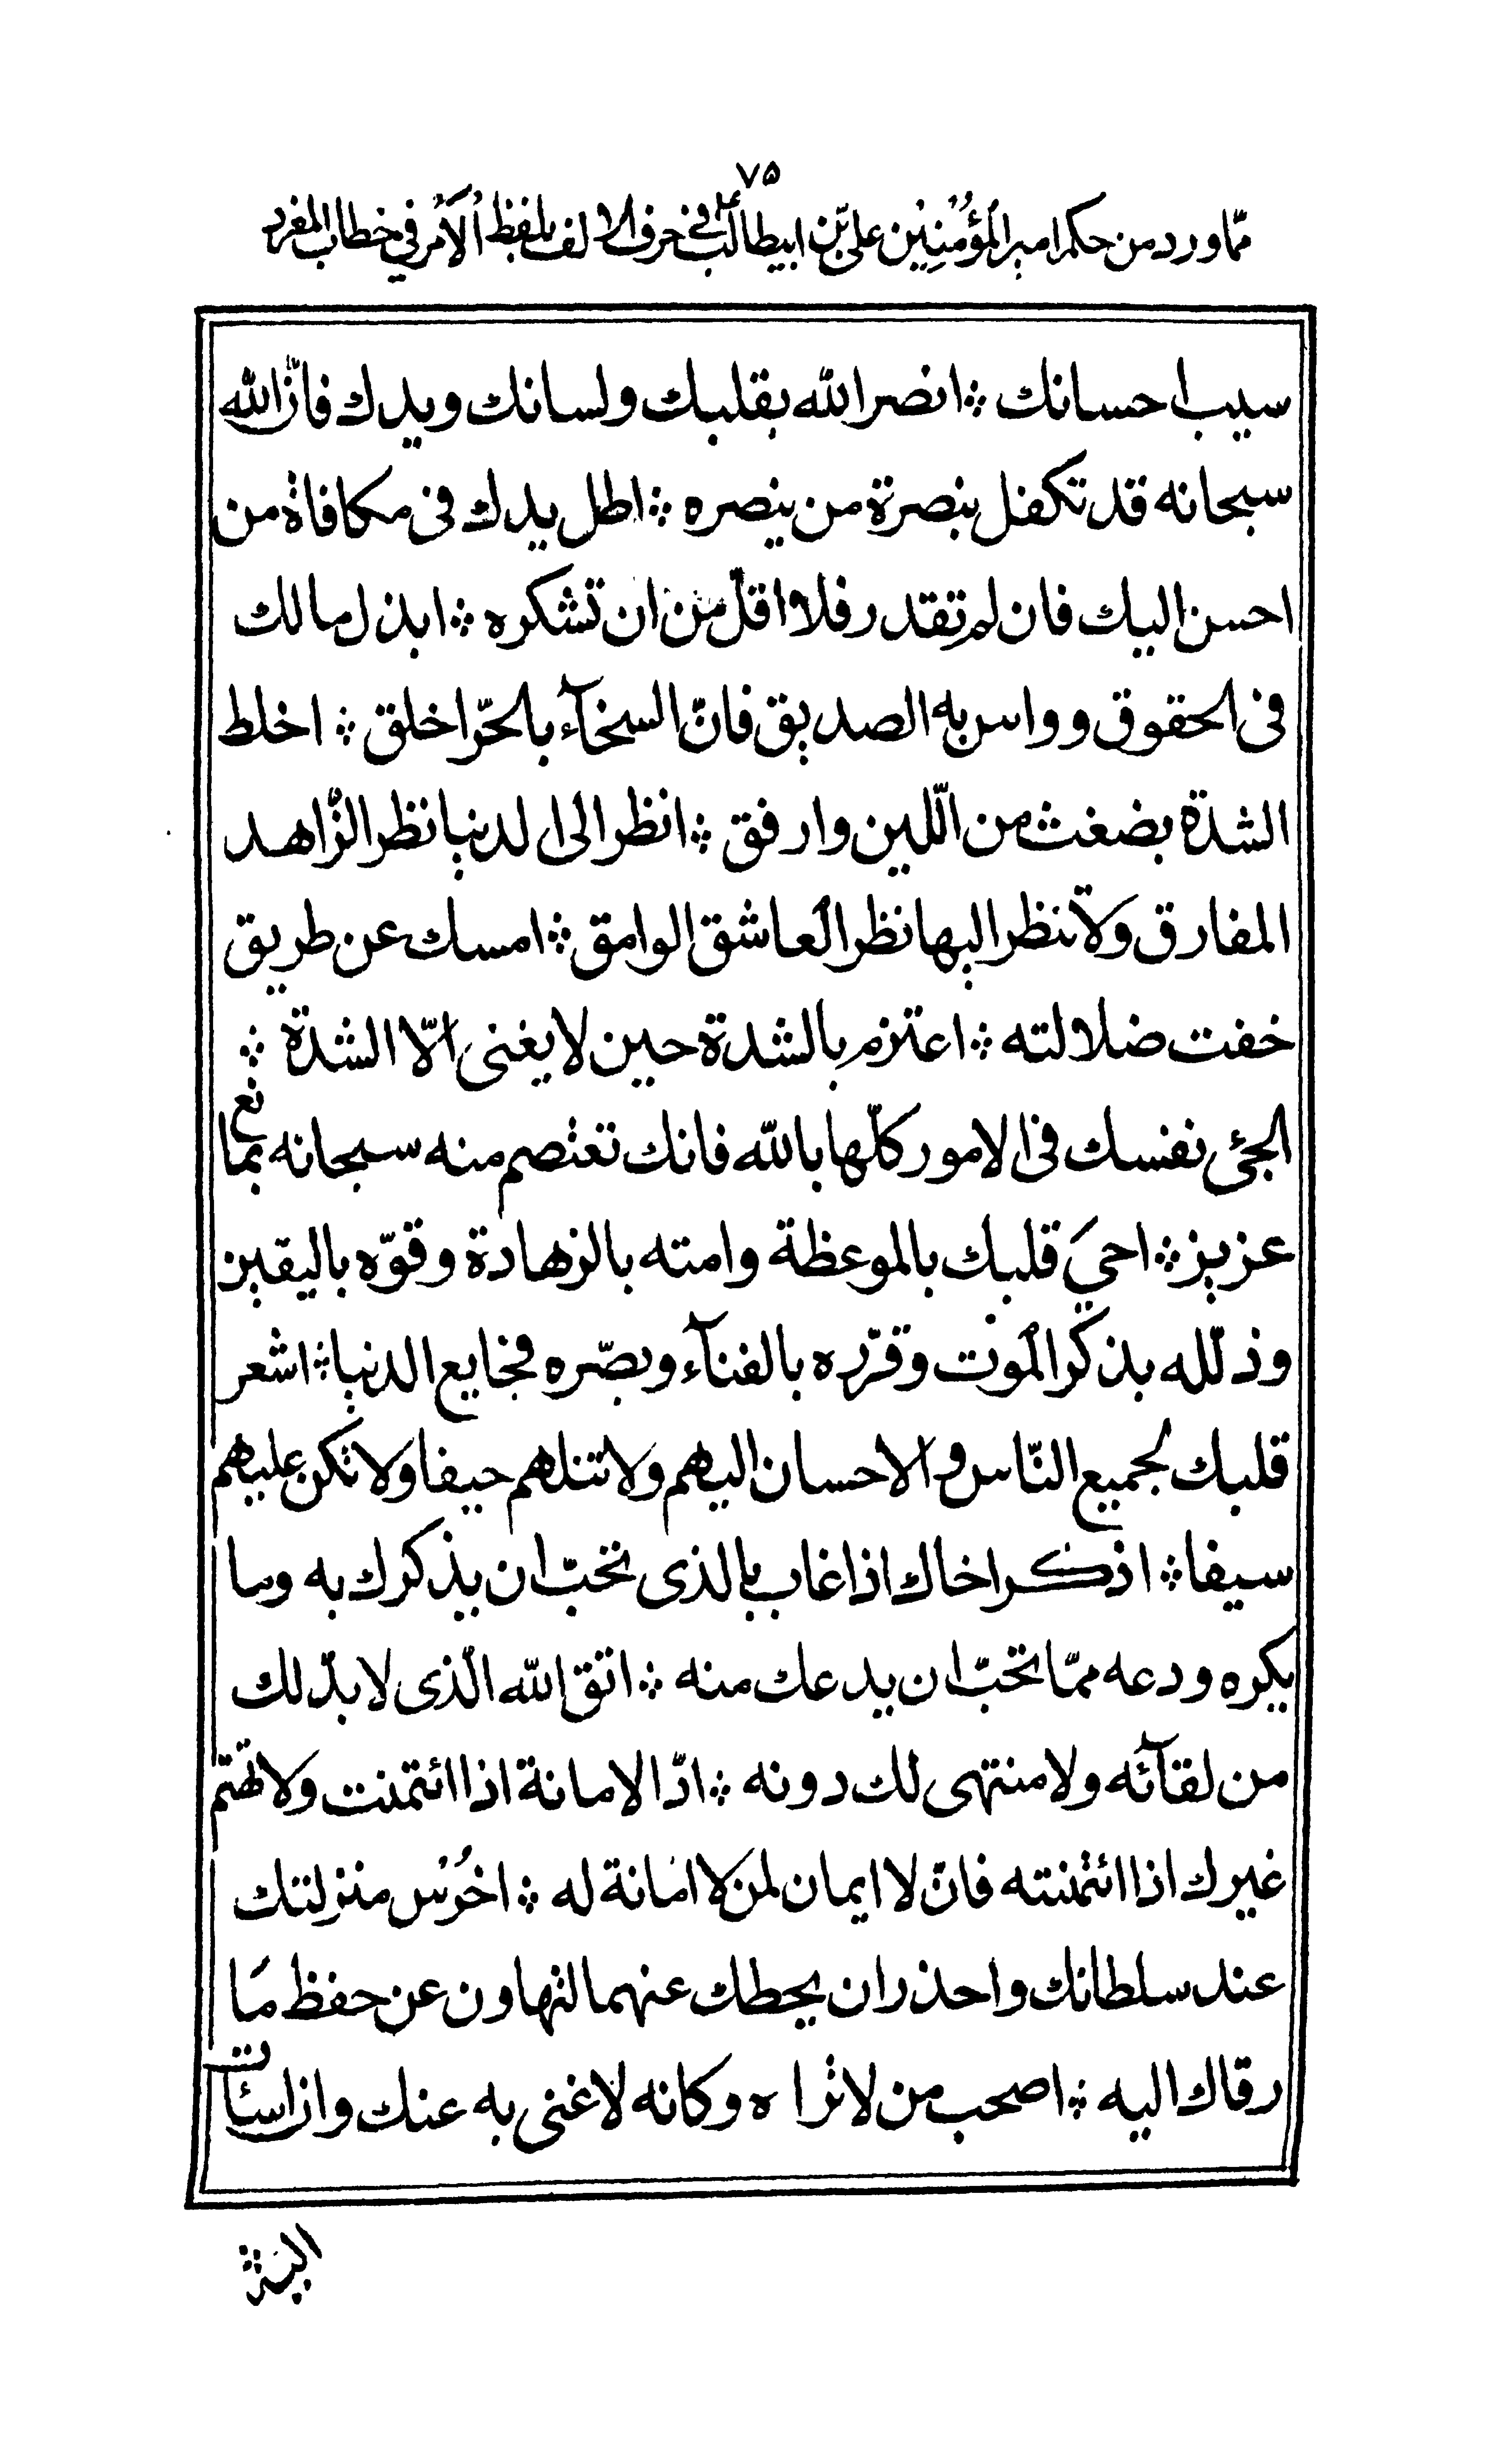 ۷۵
ممّا ورد من حكم امير المؤمنين علي بّن ابيطالب ع في حرف الالف بلفظ الأمر في خطاب المفرد
سيب احسانك ؞ انصر الله بقلبك ولسانك ويدك فانّ الله
سبحانه قد تكفل بنصرة من ينصره ؞ اطل يدك فى مكافاة من
احسن اليك فان لم تقدر فلا اقلّ من ان تشكره ؞ ابذل مالك
فى الحقوق وواس به الصديق فانّ السخآء بالحرّ اخلق ؞ اخلط
الشدة بضغث من الّلين وارفق ؞ انظر الى الدنيا نظر الزّاهد
المفارق ولا تنظر اليها نظر العاشق الوامق ؞ امسك عن طريق
خفت ضلالته ؞ اعتزم بالشدة حين لا يغنى الّا الشدة ؞
الجئ نفسك فى الامور كلّها بالله فانك تعتصم منه سبحانه بمانع
عزيز ؞ احيَ قلبك بالموعظة وامته بالزهادة وقوّه باليقين
وذلّله بذكر الموت وقرّره بالفنآء وبصّره فجايع الدنيا ؞ اشعر
قلبك لجميع النّاس والاحسان اليهم ولا تنلهم حيفا ولا تكن عليهم
سيفا ؞ اذكر اخاك اذا غاب بالذى تحبّ ان يذكرك به وما
يكره ودعه ممّا تحبّ ان يدعك منه ؞ اتق الله الّذى لا بدّ لك
من لقآئه ولا منتهى لك دونه ؞ ادّ الامانة اذا ائتمنت ولا تهتّم
غيرك اذا ائتمنته فانّ لا ايمان لمن لا امانة له ؞ احرُسْ منزلتك
عند سلطانك واحذر ان يحطك عنهما التهاون عن حفظ مَا
رقاك اليه ؞ اصحب من لا تراه وكانه لا غنى به عنك وان اسئات
اليه ؞